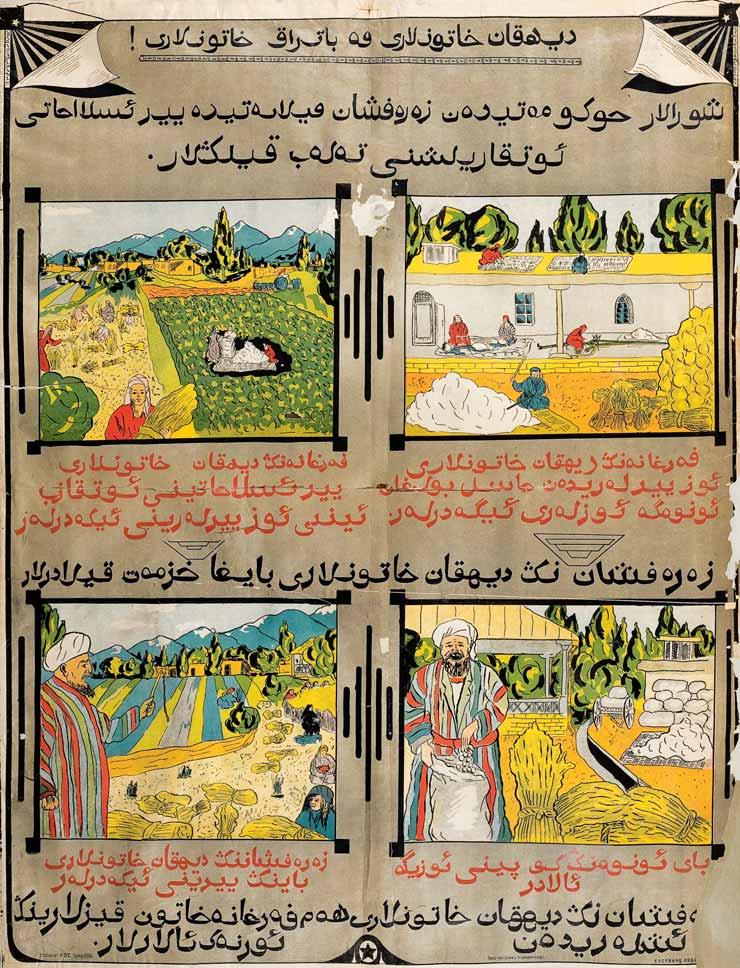 دیهقان خاتونلاری ۋە باتراق خاتونلاری !
شورالار حوکومەتیدەن زەرەفشان ۋیلایەتیدە ییر ئسلاحاتی
ئوتقاریلشنی تەلەب قیلڭلار.
فەرغانەنڭ دیهقان خاتونلاری
ئوز ییرلەریدەن حاسیل بولغان
ئونوم‌گە ئوزلەری ئیگەدرلەر.
فەرغانەنڭ دیهقان خاتونلاری
ییر ئسلاحاتینی ئوتقازب
ئیندی ئوز ییرلەرینی ئیگەدرلەر
زەرەفشان نڭ دیهقان خاتونلاری بایغا خزمەت قیلادرلار
بای ئونومنڭ کوپینی ئوزیگە
ئالادر
زەرەفشاننڭ دیهقان خاتونلاری
باینڭ ییرینی ئیگەدرلەر
زەرەفشان نڭ دیهقان خاتونلاری هەم فەرغانە خاتون قیزلارینڭ
ئشلەریدەن ئورنەک ئالادلار.